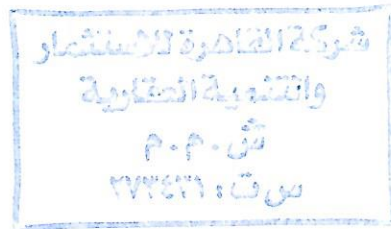 شركة القاهرة للاستثمار
والتنمية العقارية
ش.م.م
س ت: ٢٧٣٤٢٦